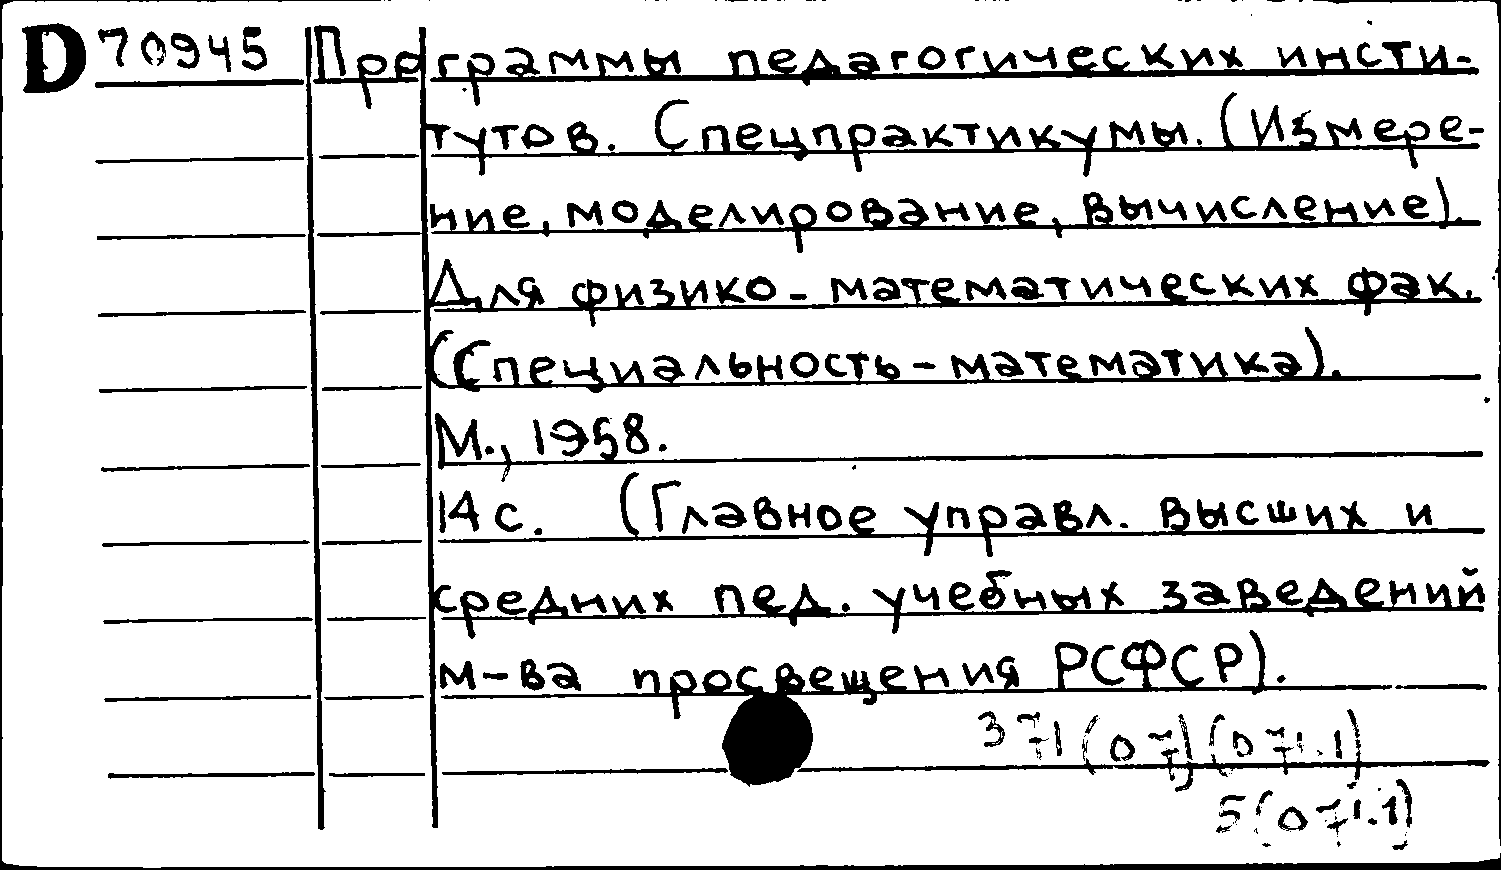 D 70945 Программы педагогических инсти-
тутов. Спецпрактикумы. (Измере-
ние, моделирование, вычисление).
Для физико-математических фак.
(Специальность-математика).
М., 1958.
14 с. (Главное управл. высших и
средних пед. учебных заведений
м-ва просвещения РСФСР).
371(07)(071.1)
5(071.1)